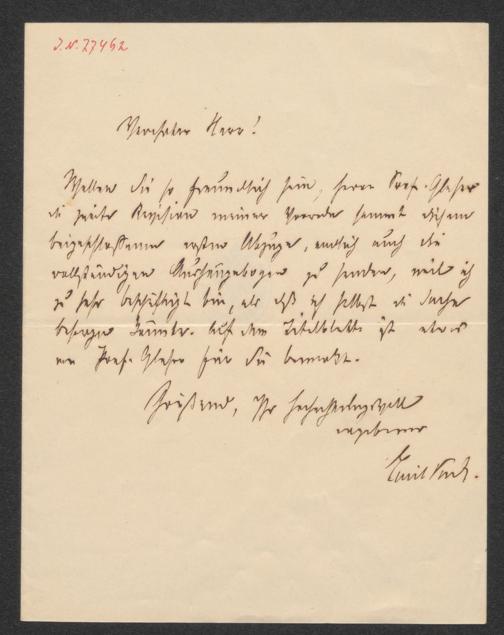 J.N. 77452
Verehrter Herr!
Wollen Sie so freundlich sein, Herrn Prof. Glaser
die zweite Revision meiner Vorrede sammt diesem
beigeschlossenen ersten Abzuge, endlich auch die
vollständigen Aushängebogen zu senden, weil ich
zu sehr beschäftigt bin, als daß ich selbst die Sache
besorgen könnte. Auf dem Titelblatte ist etwas
von Prof. Glaser für Sie bemerkt.
Grüßend, Ihr hochachtungsvoll
ergebener
Emil